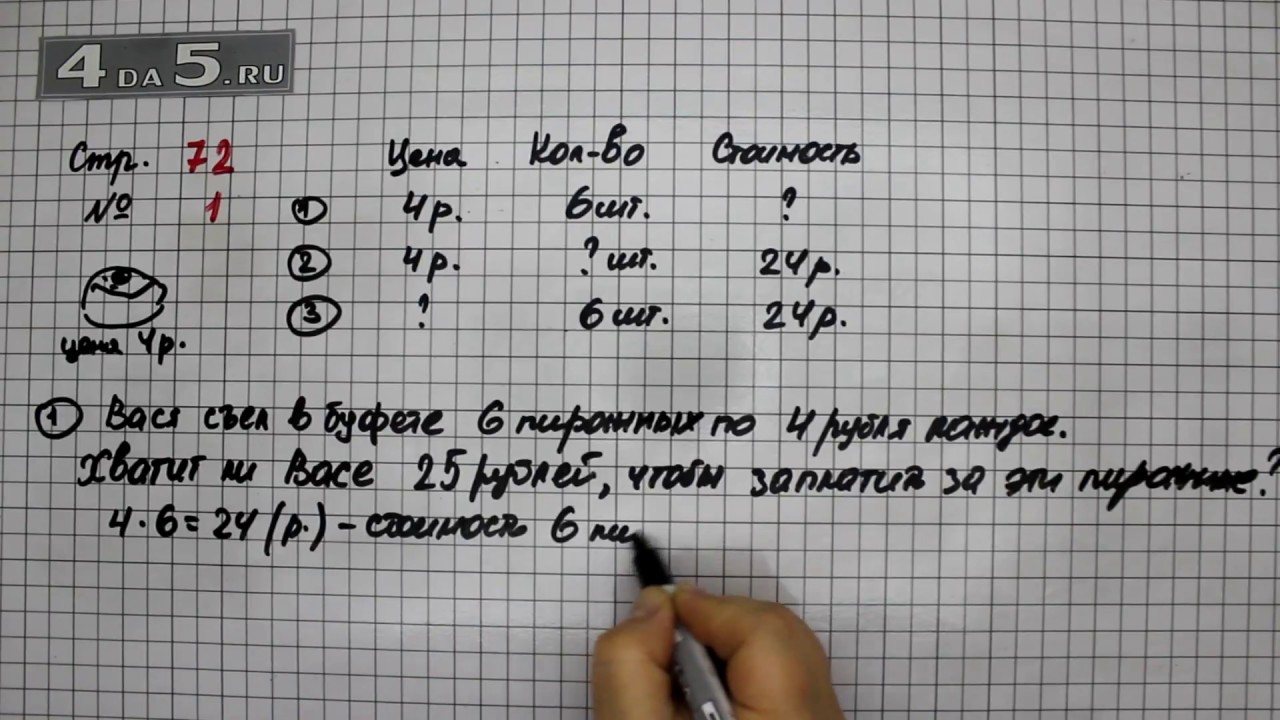 4DA5.RU
Стр. 72 Цена Кол-во Стоимость
№ 1 ① 4р. 6шт. ?
② 4р. ? шт. 24р.
③ ? 6шт. 24р.
цена 4р.
① Вася съел в буфете 6 пирожных по 4 рубля каждое.
Хватит ли Васе 25 рублей, чтобы заплатить за эти пирожные?
4·6=24(р.) – стоимость 6 пи